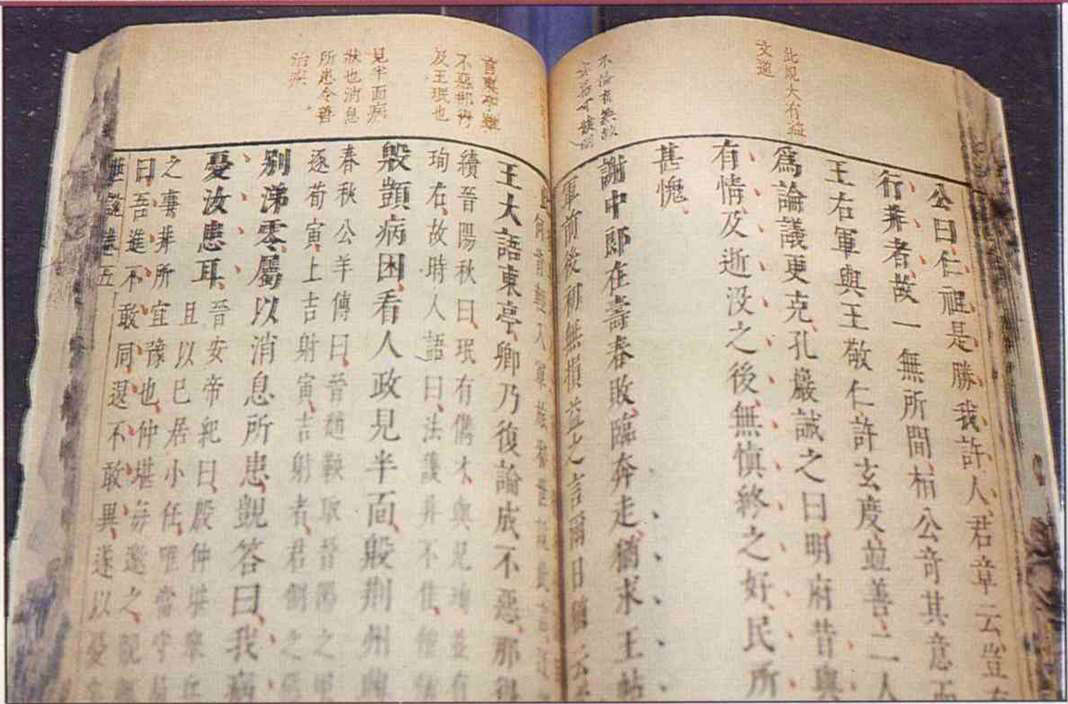 此規大有益
公曰仁祖是勝我許人君章云豈
行業者故一無所問桓公奇其意而
王右軍與王敬仁許玄度並善二人
爲論議更克孔巖誡之曰明府昔與
有情及逝没之後無慎終之好民所
甚愧
謝中郎在壽春敗臨奔走猶求玉帖
軍前後初無損益之言爾日猶云
及王珉也
王大語東亭卿乃復論成不惡那得
續晉陽秋曰珉有儁才與兄珣並有
珣右故時人語曰法護非不佳僧
見半面病
狀也消息
所患令善
治疾
殷顗病困看人政見半面殷荆州興
春秋公羊傳曰晉趙鞅取晉陽之甲
逐荀寅士吉射寅吉射者君側之惡
別涕零屬以消息所患顗答曰我病
憂汝患耳
晉安帝紀曰殷仲堪舉兵
且以己居小任唯當守局
之事非所宜豫也仲堪每邀之顗
曰吾進不敢同退不敢異遂以憂